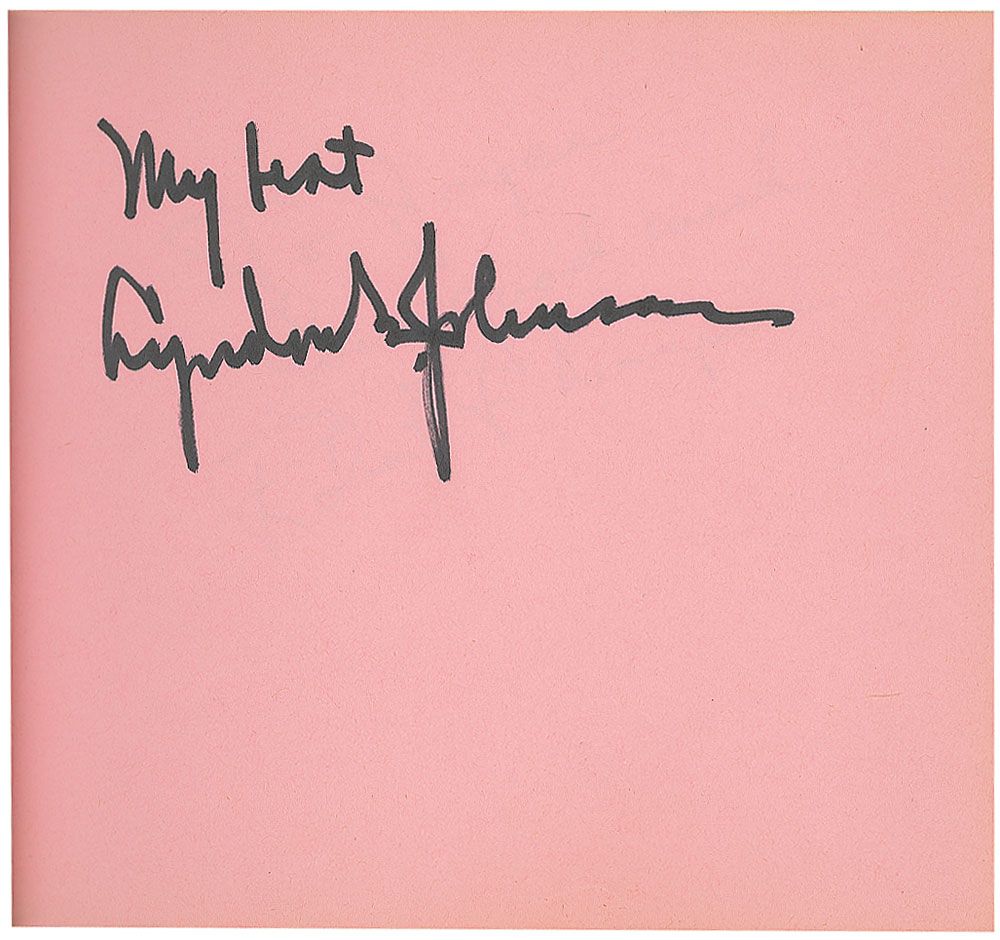 My best
Lyndon B. Johnson